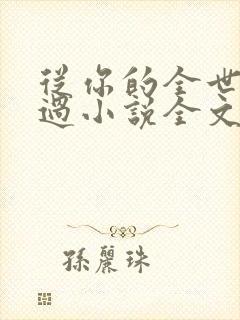 從你的全世
過小說全文
孫麗珠